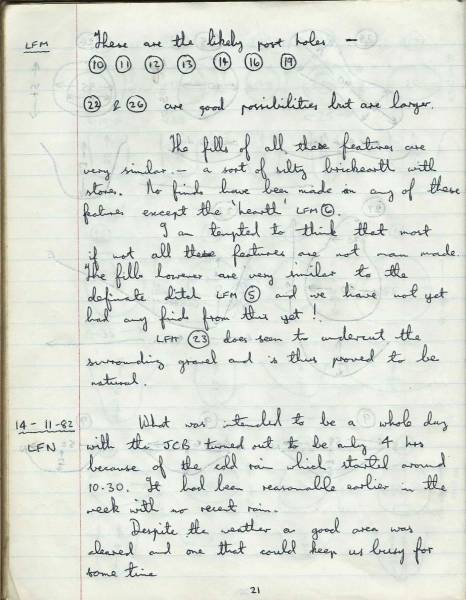 LFM These are the likely post holes –
10 11 12 13 14 16 19
22 & 26 are good possibilities but are larger.
The fills of all these features are
very similar – a sort of silty brickearth with
stones. No finds have been made in any of these
features except the 'hearth' LFM 6.
I am tempted to think that most
if not all these features are not man made.
The fills however are very similar to the
definate ditch LFM 5 and we have not yet
had any finds from this yet!
LFM 23 does seem to undercut the
surrounding gravel and is thus proved to be
natural.
14-11-82 What was intended to be a whole day
LFN with the JCB turned out to be only 4 hrs
because of the cold rain which started around
10.30. It had been reasonable earlier in the
week with no recent rain.
Despite the weather a good area was
cleared and one that could keep us busy for
some time
21